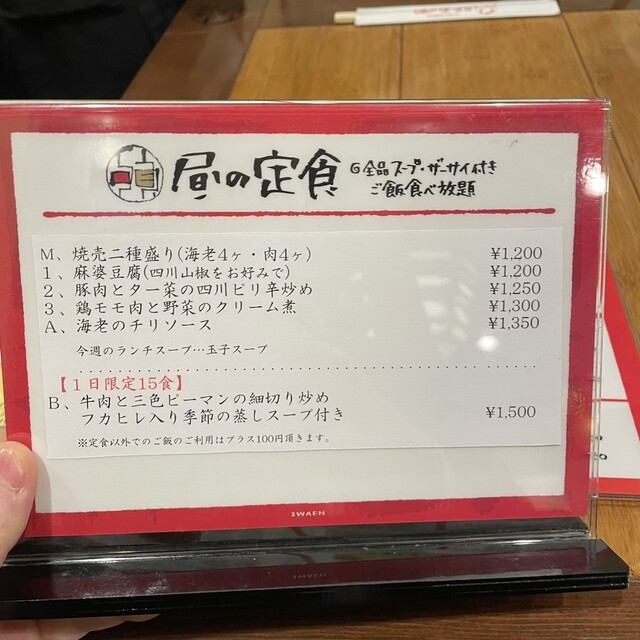 昼の定食 全品スープ・ザーサイ付き
ご飯食べ放題
M、焼売二種盛り(海老4ヶ・肉4ヶ) ¥1,200
1、麻婆豆腐(四川山椒をお好みで) ¥1,200
2、豚肉とター菜の四川ピリ辛炒め ¥1,250
3、鶏モモ肉と野菜のクリーム煮 ¥1,300
A、海老のチリソース ¥1,350
今週のランチスープ…玉子スープ
【1日限定15食】
B、牛肉と三色ピーマンの細切り炒め
フカヒレ入り季節の蒸しスープ付き ¥1,500
※定食以外でのご飯のご利用はプラス100円頂きます。
IWAEN